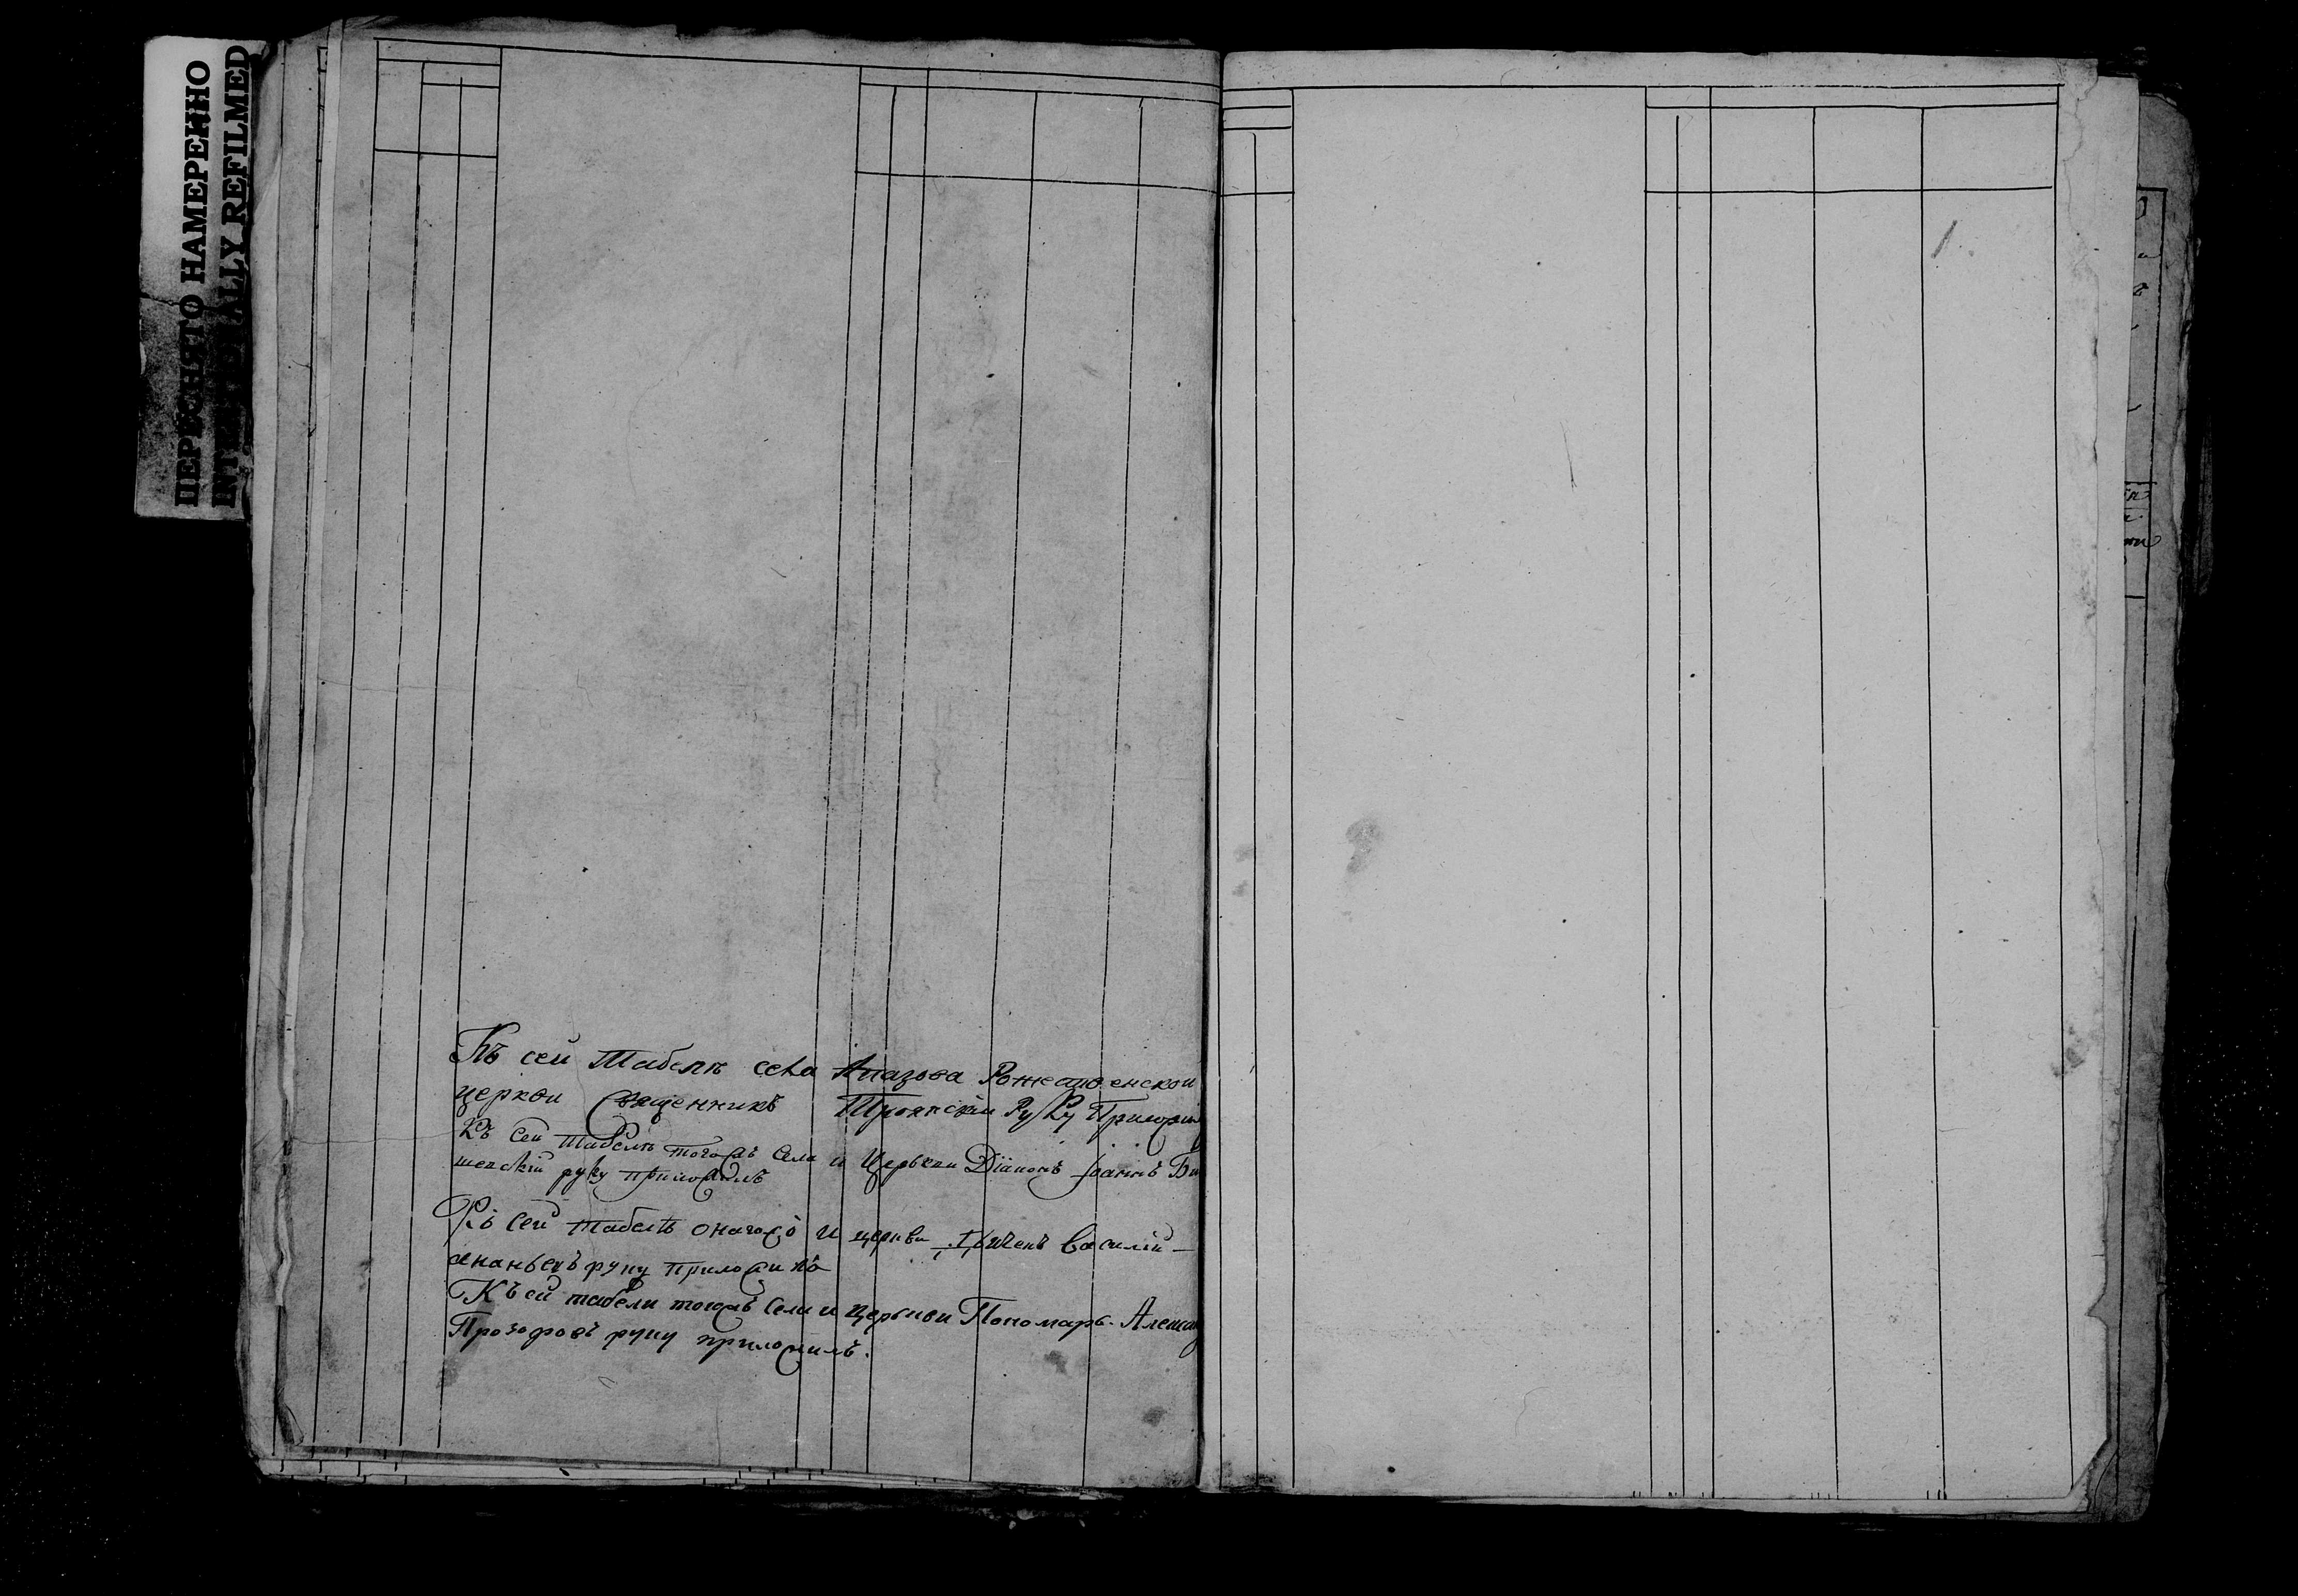 ПЕРЕСНЯТО НАМЕРЕННО
INTENTIONALLY REFILMED
Къ сей Табелѣ села Апазова Рожественской
церкви священникъ Троянскій Руку Приложи
Къ сей табелѣ тогожъ села и Церькви Dїаконъ Іоаннъ
руку приложилъ
Къ сей табелѣ оногожъ и церкви Василій
ананьевъ руку приложилъ
Къ сй табели тогожъ села и церькви Пономарь
Прозоровъ руку приложилъ.